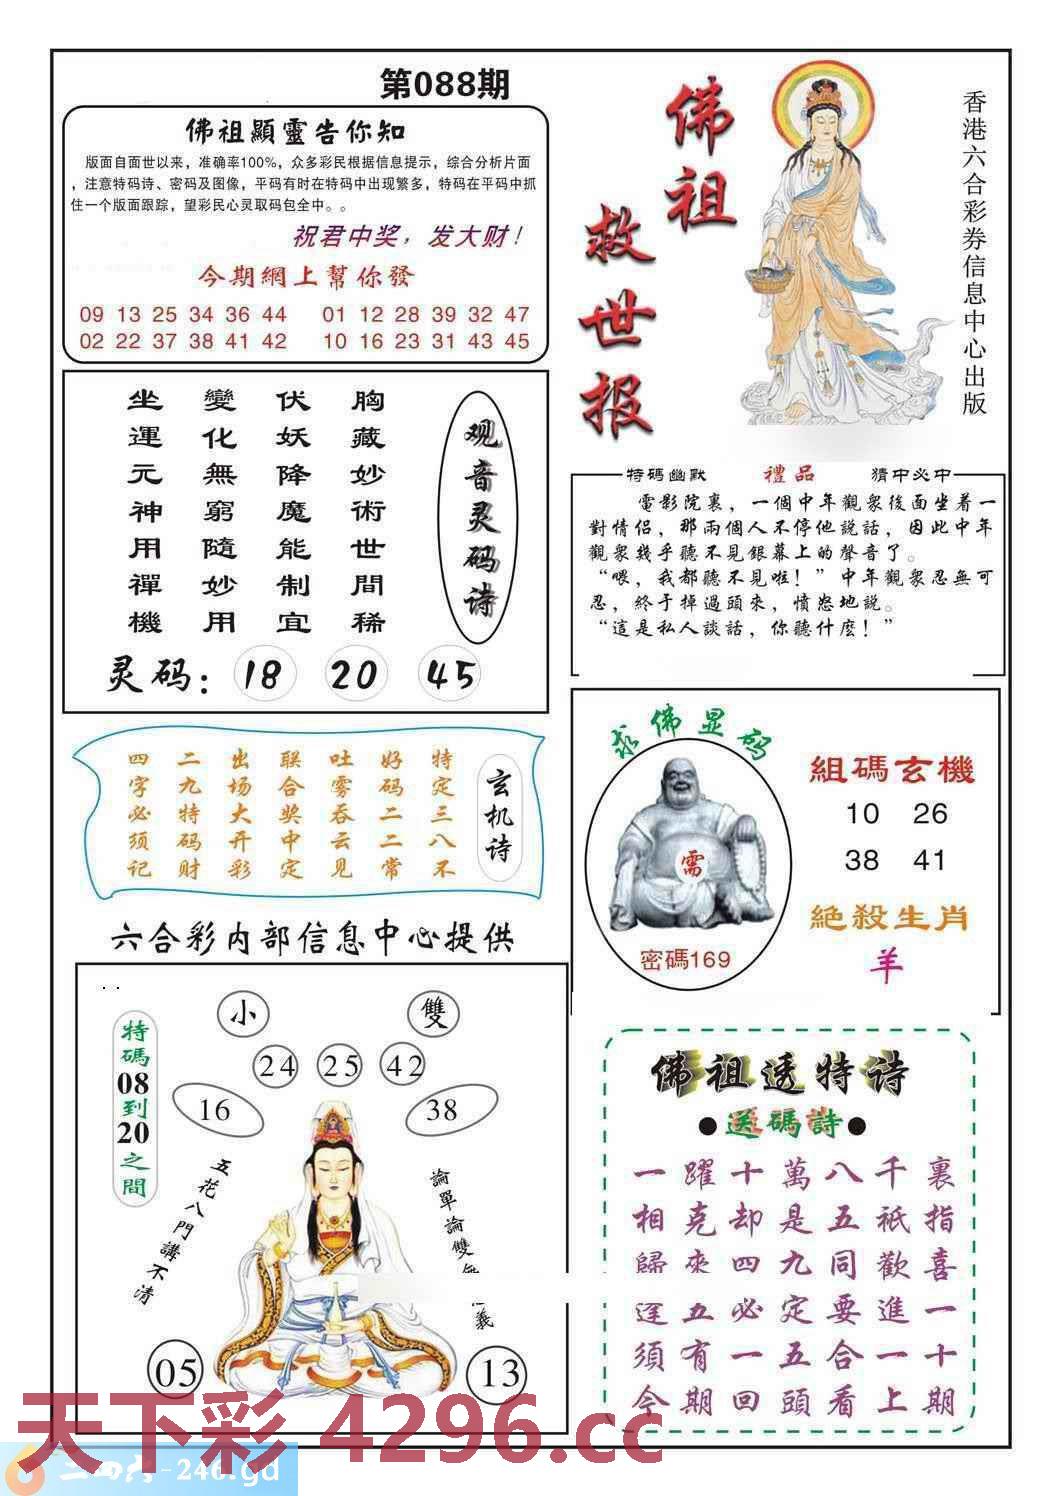 第088期
佛祖顯靈告你知
版面自面世以来，准确率100%，众多彩民根据信息提示，综合分析片面
，注意特码诗、密码及图像，平码有时在特码中出现繁多，特码在平码中抓
住一个版面跟踪，望彩民心灵取码包全中。。
祝君中奖，发大财！
今期網上幫你發
09 13 25 34 36 44 01 12 28 39 32 47
02 22 37 38 41 42 10 16 23 31 43 45
佛祖
救世报
香港六合彩券信息中心出版
观音灵码诗
胸藏妙術世間稀
伏妖降魔能制宜
變化無窮隨妙用
坐運元神用禪機
灵码：18 20 45
特碼幽默 禮品 猜中必中
電影院裏，一個中年觀衆後面坐着一
對情侶，那兩個人不停他説話，因此中年
觀衆幾乎聽不見銀幕上的聲音了。
“喂，我都聽不見啦！”中年觀衆忍無可
忍，終于掉過頭來，憤怒地説。
“這是私人談話，你聽什麽！”
玄机诗
特定三八不
好码二二常
吐雾吞云见
联合奖中定
出场大开彩
二九特码财
四字必须记
求佛显码
需
密碼169
組碼玄機
10 26
38 41
絶殺生肖
羊
六合彩内部信息中心提供
特碼08到20之間
小 雙
24 25 42
16 38
五花八門講不清
論單論雙
義
05 13
佛祖透特诗
送碼詩
一躍十萬八千裏
相克却是五祇指
歸來四九同歡喜
逢五必定要進一
須有一五合一十
今期回頭看上期
天下彩 4296.cc
二四六-246.gd